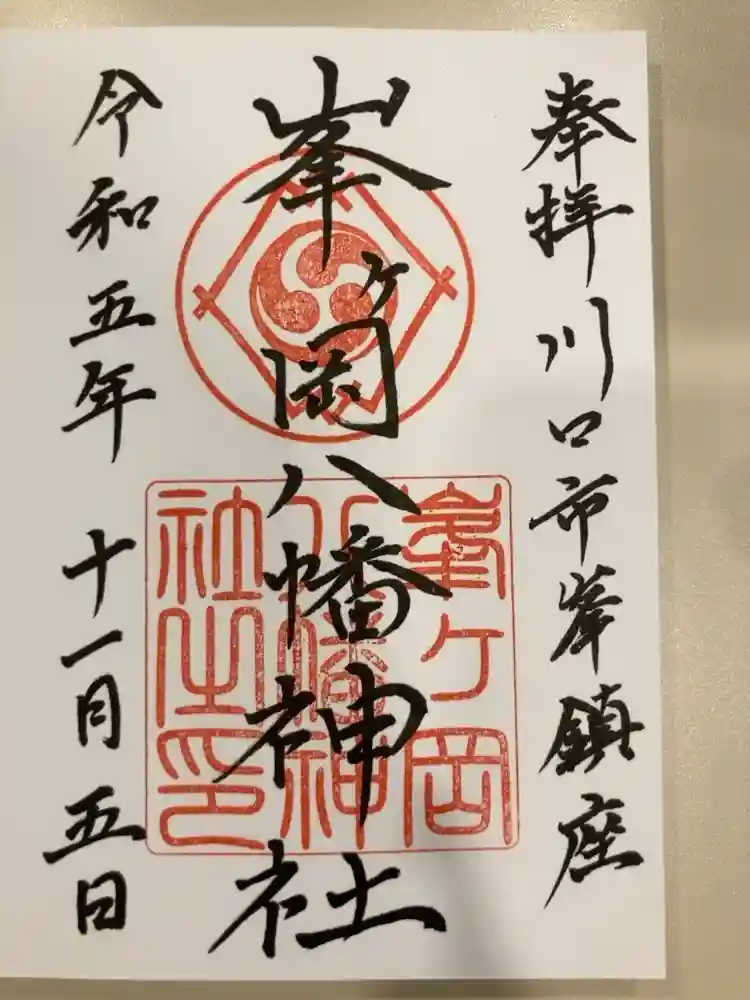 奉拝 川口市峯鎮座
峯ヶ岡八幡神社
令和五年 十一月 五日
峯ヶ岡
八幡神
社之印